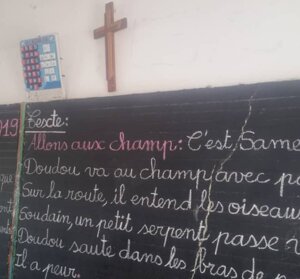 019 Texte:
Allons aux champ: C'est Same
Doudou va au champ avec pa
Sur la route, il entend les oiseau
Soudain, un petit serpent passe
Doudou saute dans les bras de
Il a peur.